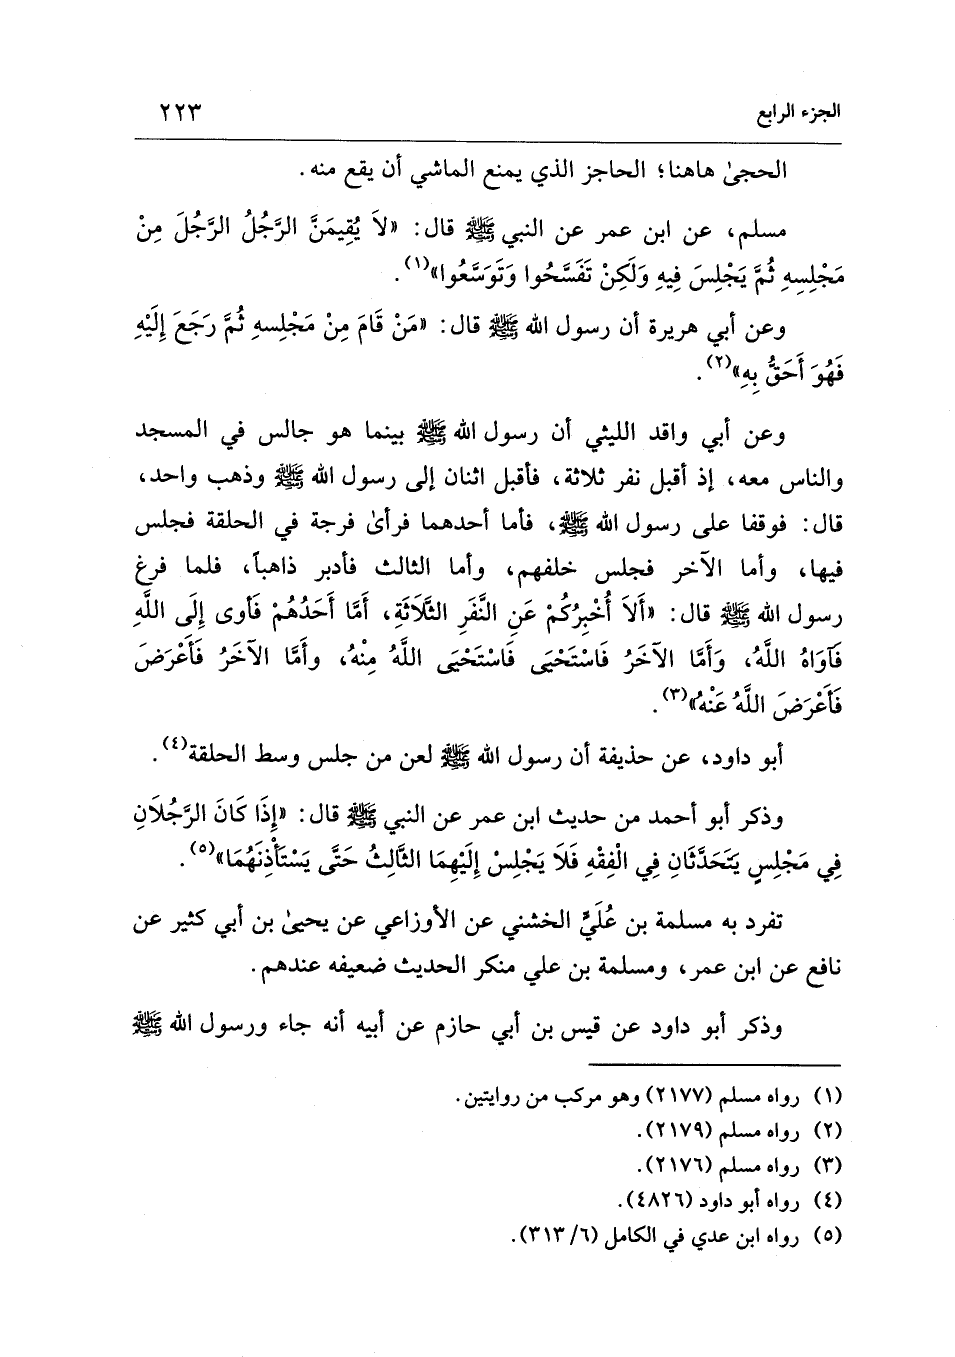 الجزء الرابع ٢٢٣
الحجىٰ هاهنا؛ الحاجز الذي يمنع الماشي أن يقع منه.
مسلم، عن ابن عمر عن النبي ﷺ قال: «لاَ يُقِيمَنَّ الرَّجُلُ الرَّجُلَ مِنْ
مَجْلِسِهِ ثُمَّ يَجْلِسَ فِيهِ وَلَكِنْ تَفَسَّحُوا وَتَوَسَّعُوا»(١).
وعن أبي هريرة أن رسول الله ﷺ قال: «مَنْ قَامَ مِنْ مَجْلِسِهِ ثُمَّ رَجَعَ إِلَيْهِ
فَهُوَ أَحَقُّ بِهِ»(٢).
وعن أبي واقد الليثي أن رسول الله ﷺ بينما هو جالس في المسجد
والناس معه، إذ أقبل نفر ثلاثة، فأقبل اثنان إلى رسول الله ﷺ وذهب واحد،
قال: فوقفا على رسول الله ﷺ، فأما أحدهما فرأىٰ فرجة في الحلقة فجلس
فيها، وأما الآخر فجلس خلفهم، وأما الثالث فأدبر ذاهباً، فلما فرغ
رسول الله ﷺ قال: «أَلاَ أُخْبِرُكُمْ عَنِ النَّفَرِ الثَّلاَثَةِ، أَمَّا أَحَدُهُمْ فَأَوى إِلَى اللَّهِ
فَآوَاهُ اللَّهُ، وَأَمَّا الآخَرُ فَاسْتَحْيَى فَاسْتَحْيَى اللَّهُ مِنْهُ، وأَمَّا الآخَرُ فَأَعْرَضَ
فَأَعْرَضَ اللَّهُ عَنْهُ»(٣).
أبو داود، عن حذيفة أن رسول الله ﷺ لعن من جلس وسط الحلقة(٤).
وذكر أبو أحمد من حديث ابن عمر عن النبي ﷺ قال: «إِذَا كَانَ الرَّجُلاَنِ
فِي مَجْلِسٍ يَتَحَدَّثَانِ فِي الْفِقْهِ فَلاَ يَجْلِسْ إِلَيْهِمَا الثَّالِثُ حَتَّى يَسْتَأْذِنَهُمَا»(٥).
تفرد به مسلمة بن عُلَيٍّ الخشني عن الأوزاعي عن يحيىٰ بن أبي كثير عن
نافع عن ابن عمر، ومسلمة بن علي منكر الحديث ضعيفه عندهم.
وذكر أبو داود عن قيس بن أبي حازم عن أبيه أنه جاء ورسول الله ﷺ
(١) رواه مسلم (٢١٧٧) وهو مركب من روايتين.
(٢) رواه مسلم (٢١٧٩).
(٣) رواه مسلم (٢١٧٦).
(٤) رواه أبو داود (٤٨٢٦).
(٥) رواه ابن عدي في الكامل (٦/ ٣١٣).